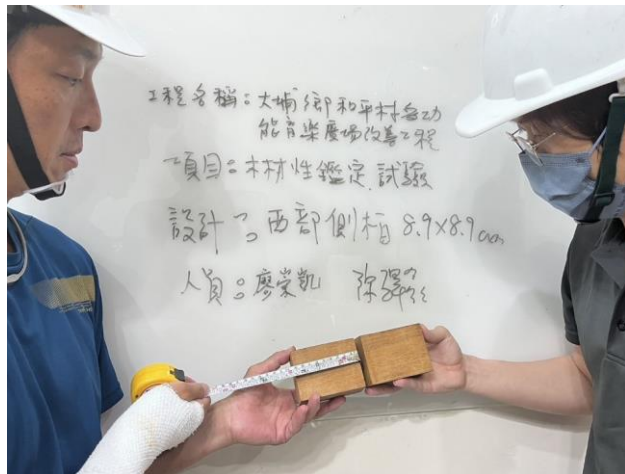 工程名稱：大埔鄉和平村多功
能音樂廣場改善工程
項目：木材性鑑定.試驗
設計：西部側柏 8.9×8.9cm
人員：廖崇凱 陳